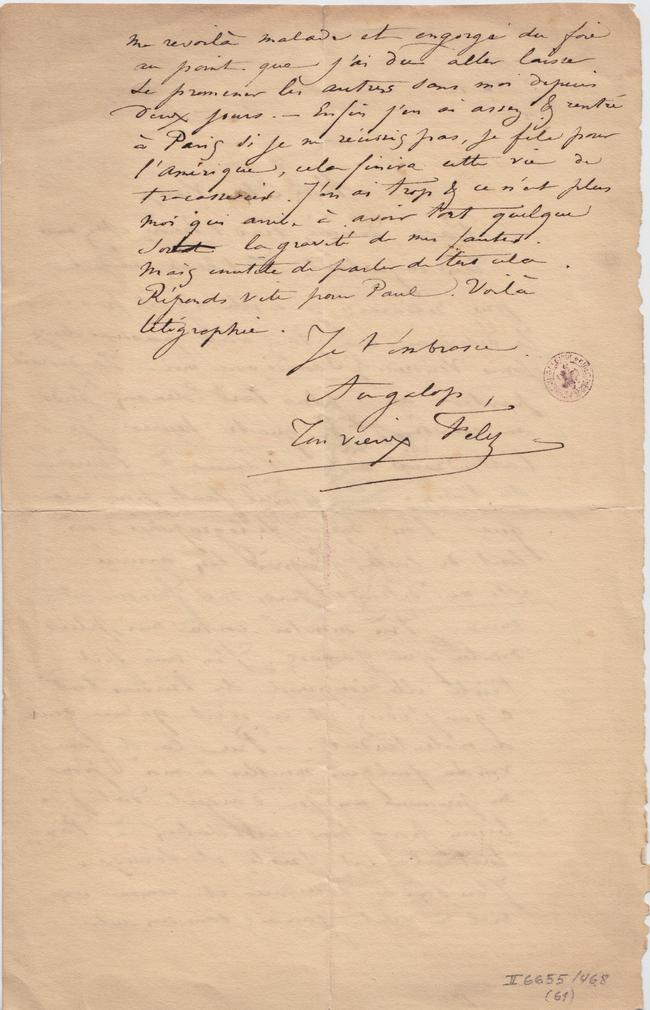 me revoilà malade et engorgé du foie
au point que j'ai dû aller laisser
se promener les autres sans moi depuis
deux jours. — Enfin j'en ai assez & rentré
à Paris si je ne réussis pas, je file pour
l'Amérique, cela finira cette vie de
tracasseries. J'en ai trop & ce n'est plus
moi qui arrive à avoir tort quelque
soit la gravité de mes fautes.
Mais inutile de parler de tout cela.
Réponds vite pour Paul. Voilà
télégraphie.
Je t'embrasse
Au galop,
Ton vieux Fély
II 6655/468
(61)